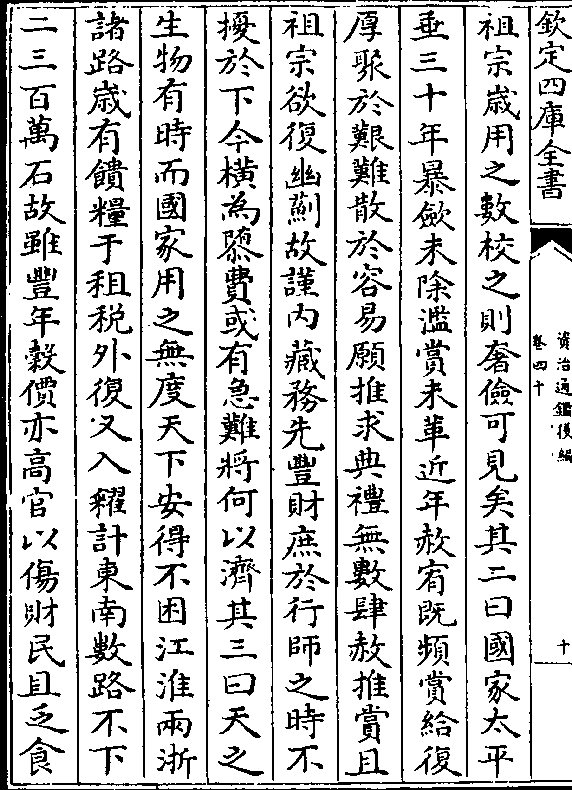 欽定四庫全書
資治通鑑後編
卷四十
十
祖宗歲用之數校之則奢儉可見矣其二曰國家太平
垂三十年暴斂未除濫賞未革近年赦宥既頻賞給復
厚聚於艱難散於容易願推求典禮無數肆赦推賞且
祖宗欲復幽薊故謹内藏務先豐財庶於行師之時不
擾於下今橫為隳費或有急難將何以濟其三曰天之
生物有時而國家用之無度天下安得不困江淮兩浙
諸路歲有饋糧于租税外復又入糴計東南數路不下
二三百萬石故雖豐年穀價亦高官以傷財民且乏食